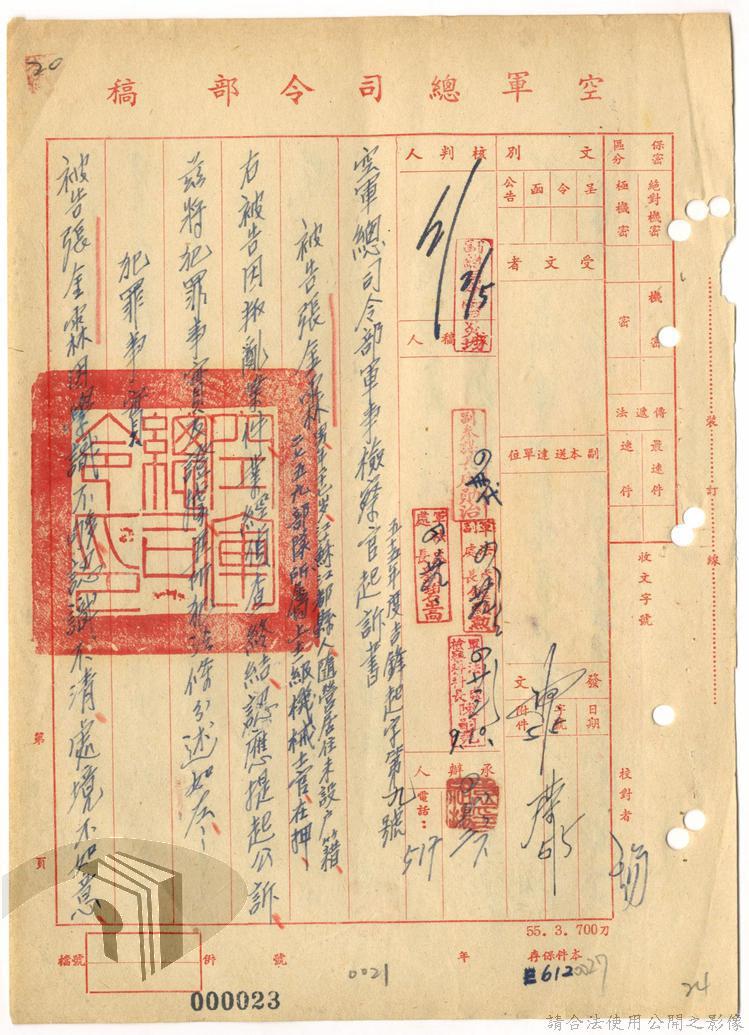 20
空軍總司令部稿
保密區分
絕對機密
極機密
機密
密
傳遞法
最速件
速件
收文字號
校對者
文別
呈
令
函
公告
受文者
副本送達單位
發文
日期
字號
附件
核判人
核稿人
承辦人
電話：
517
裝訂線
空軍總司令部軍事檢察官起訴書
五十五年度吉鋒起字第九號
被告張金霖
江蘇江都縣人隨營居住未設戶籍
部隊所屬上士一級機械士官在押
右被告因叛亂案件業經偵查終結認應提起公訴
茲將犯罪事實及證據並所犯法條分述如左：
犯罪事實
被告張金霖因學識不修認識不清處境不如意
空軍總司令印
第
頁
55. 3. 700刀
檔號
併
號
年
本件保存
0021
000023
612
0027
24
請合法使用公開之影像